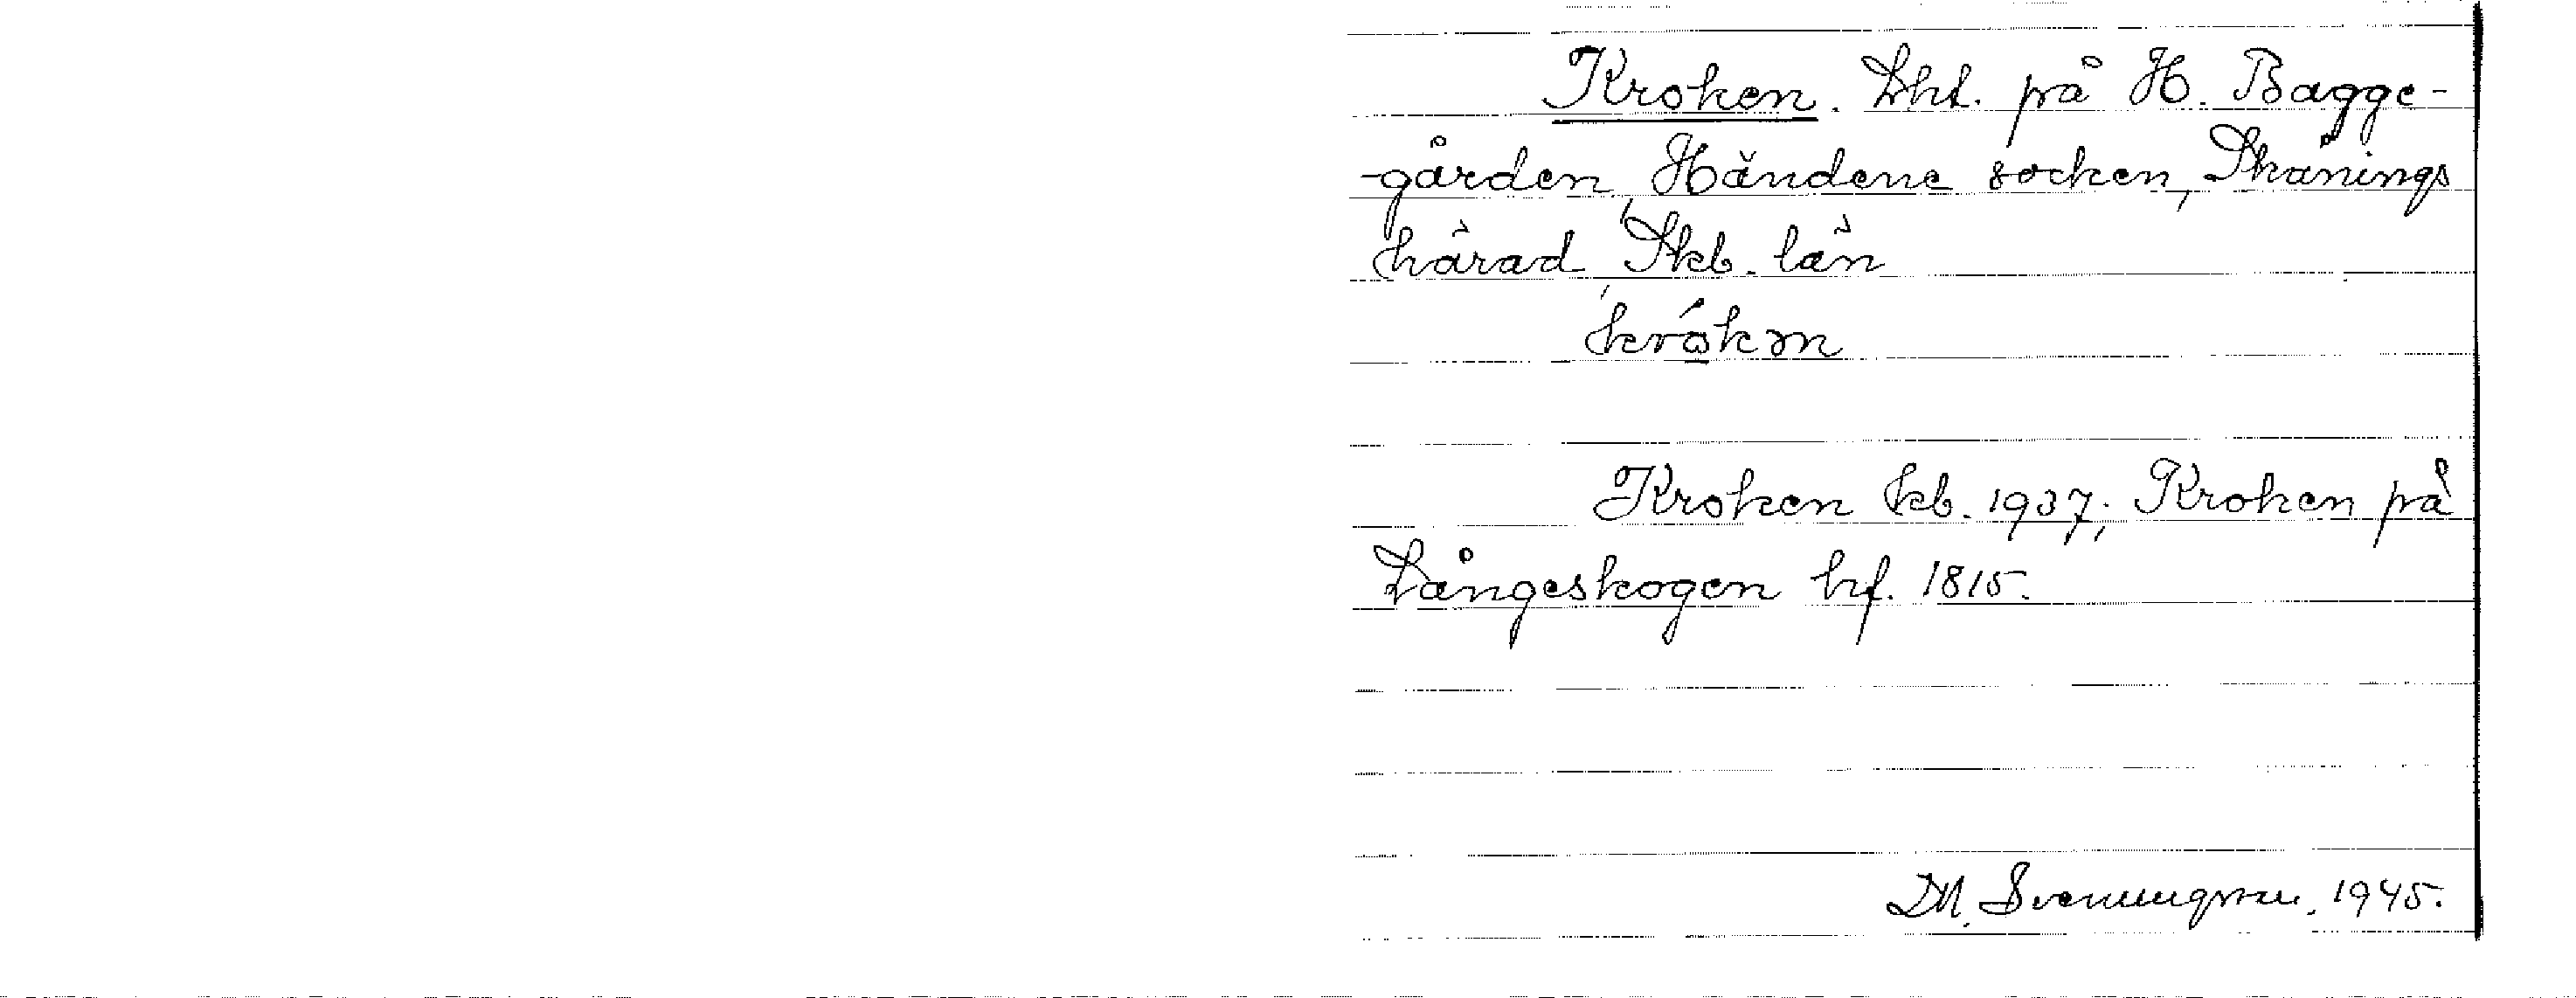 Kroken. Lht. på H. Bagge-
-gården, Händene socken, Skånings
härad, Skb. län
krókən
Kroken kb. 1937; Kroken på
Långeskogen hf. 1815.
D.M. Svenungsson, 1945.